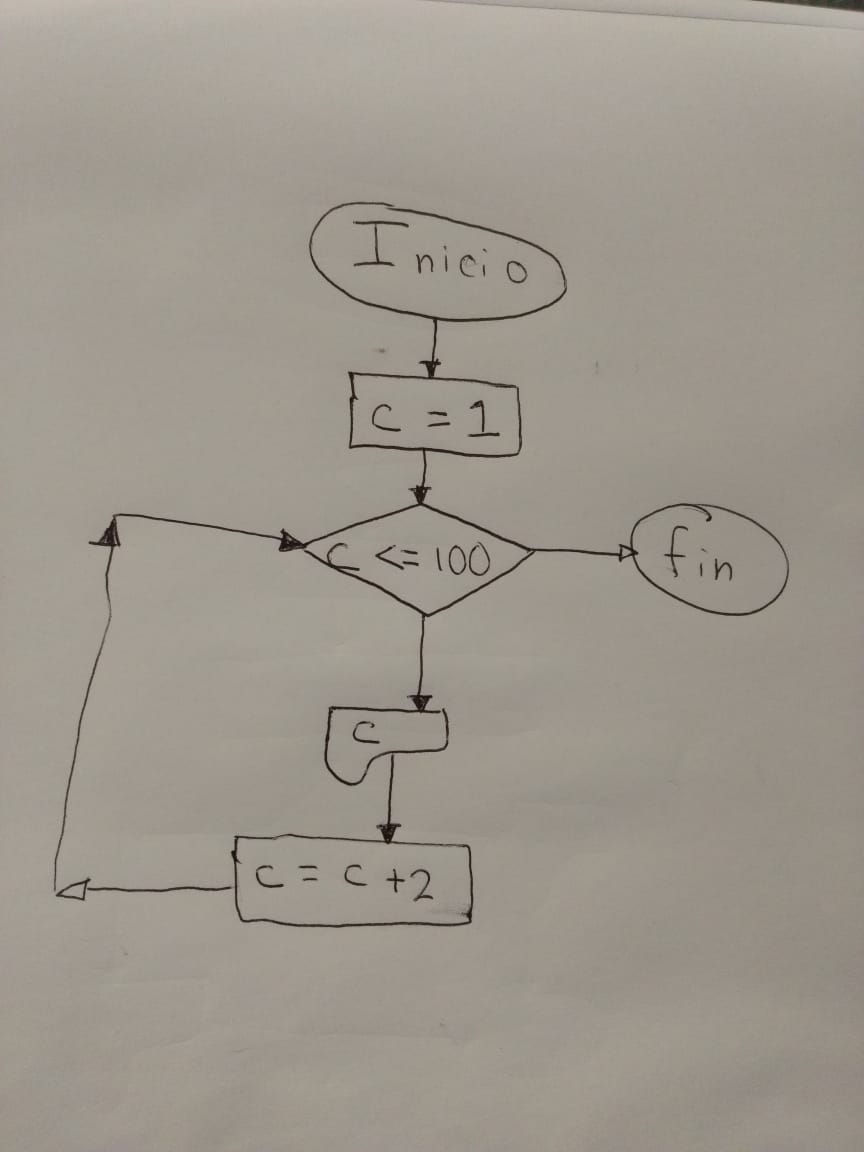 Inicio
c = 1
c <= 100
fin
c
c = c + 2